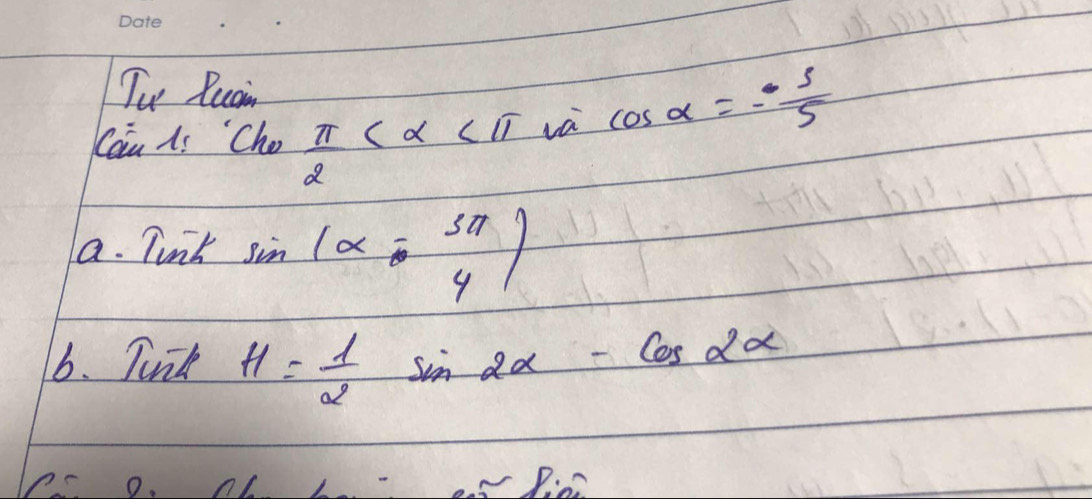 Date
Tự luận
Câu 1: Cho π/2 < α < π và cos α = - 3/5
a. Tính sin (α - 3π/4)
b. Tính H = 1/2 sin 2α - cos 2α